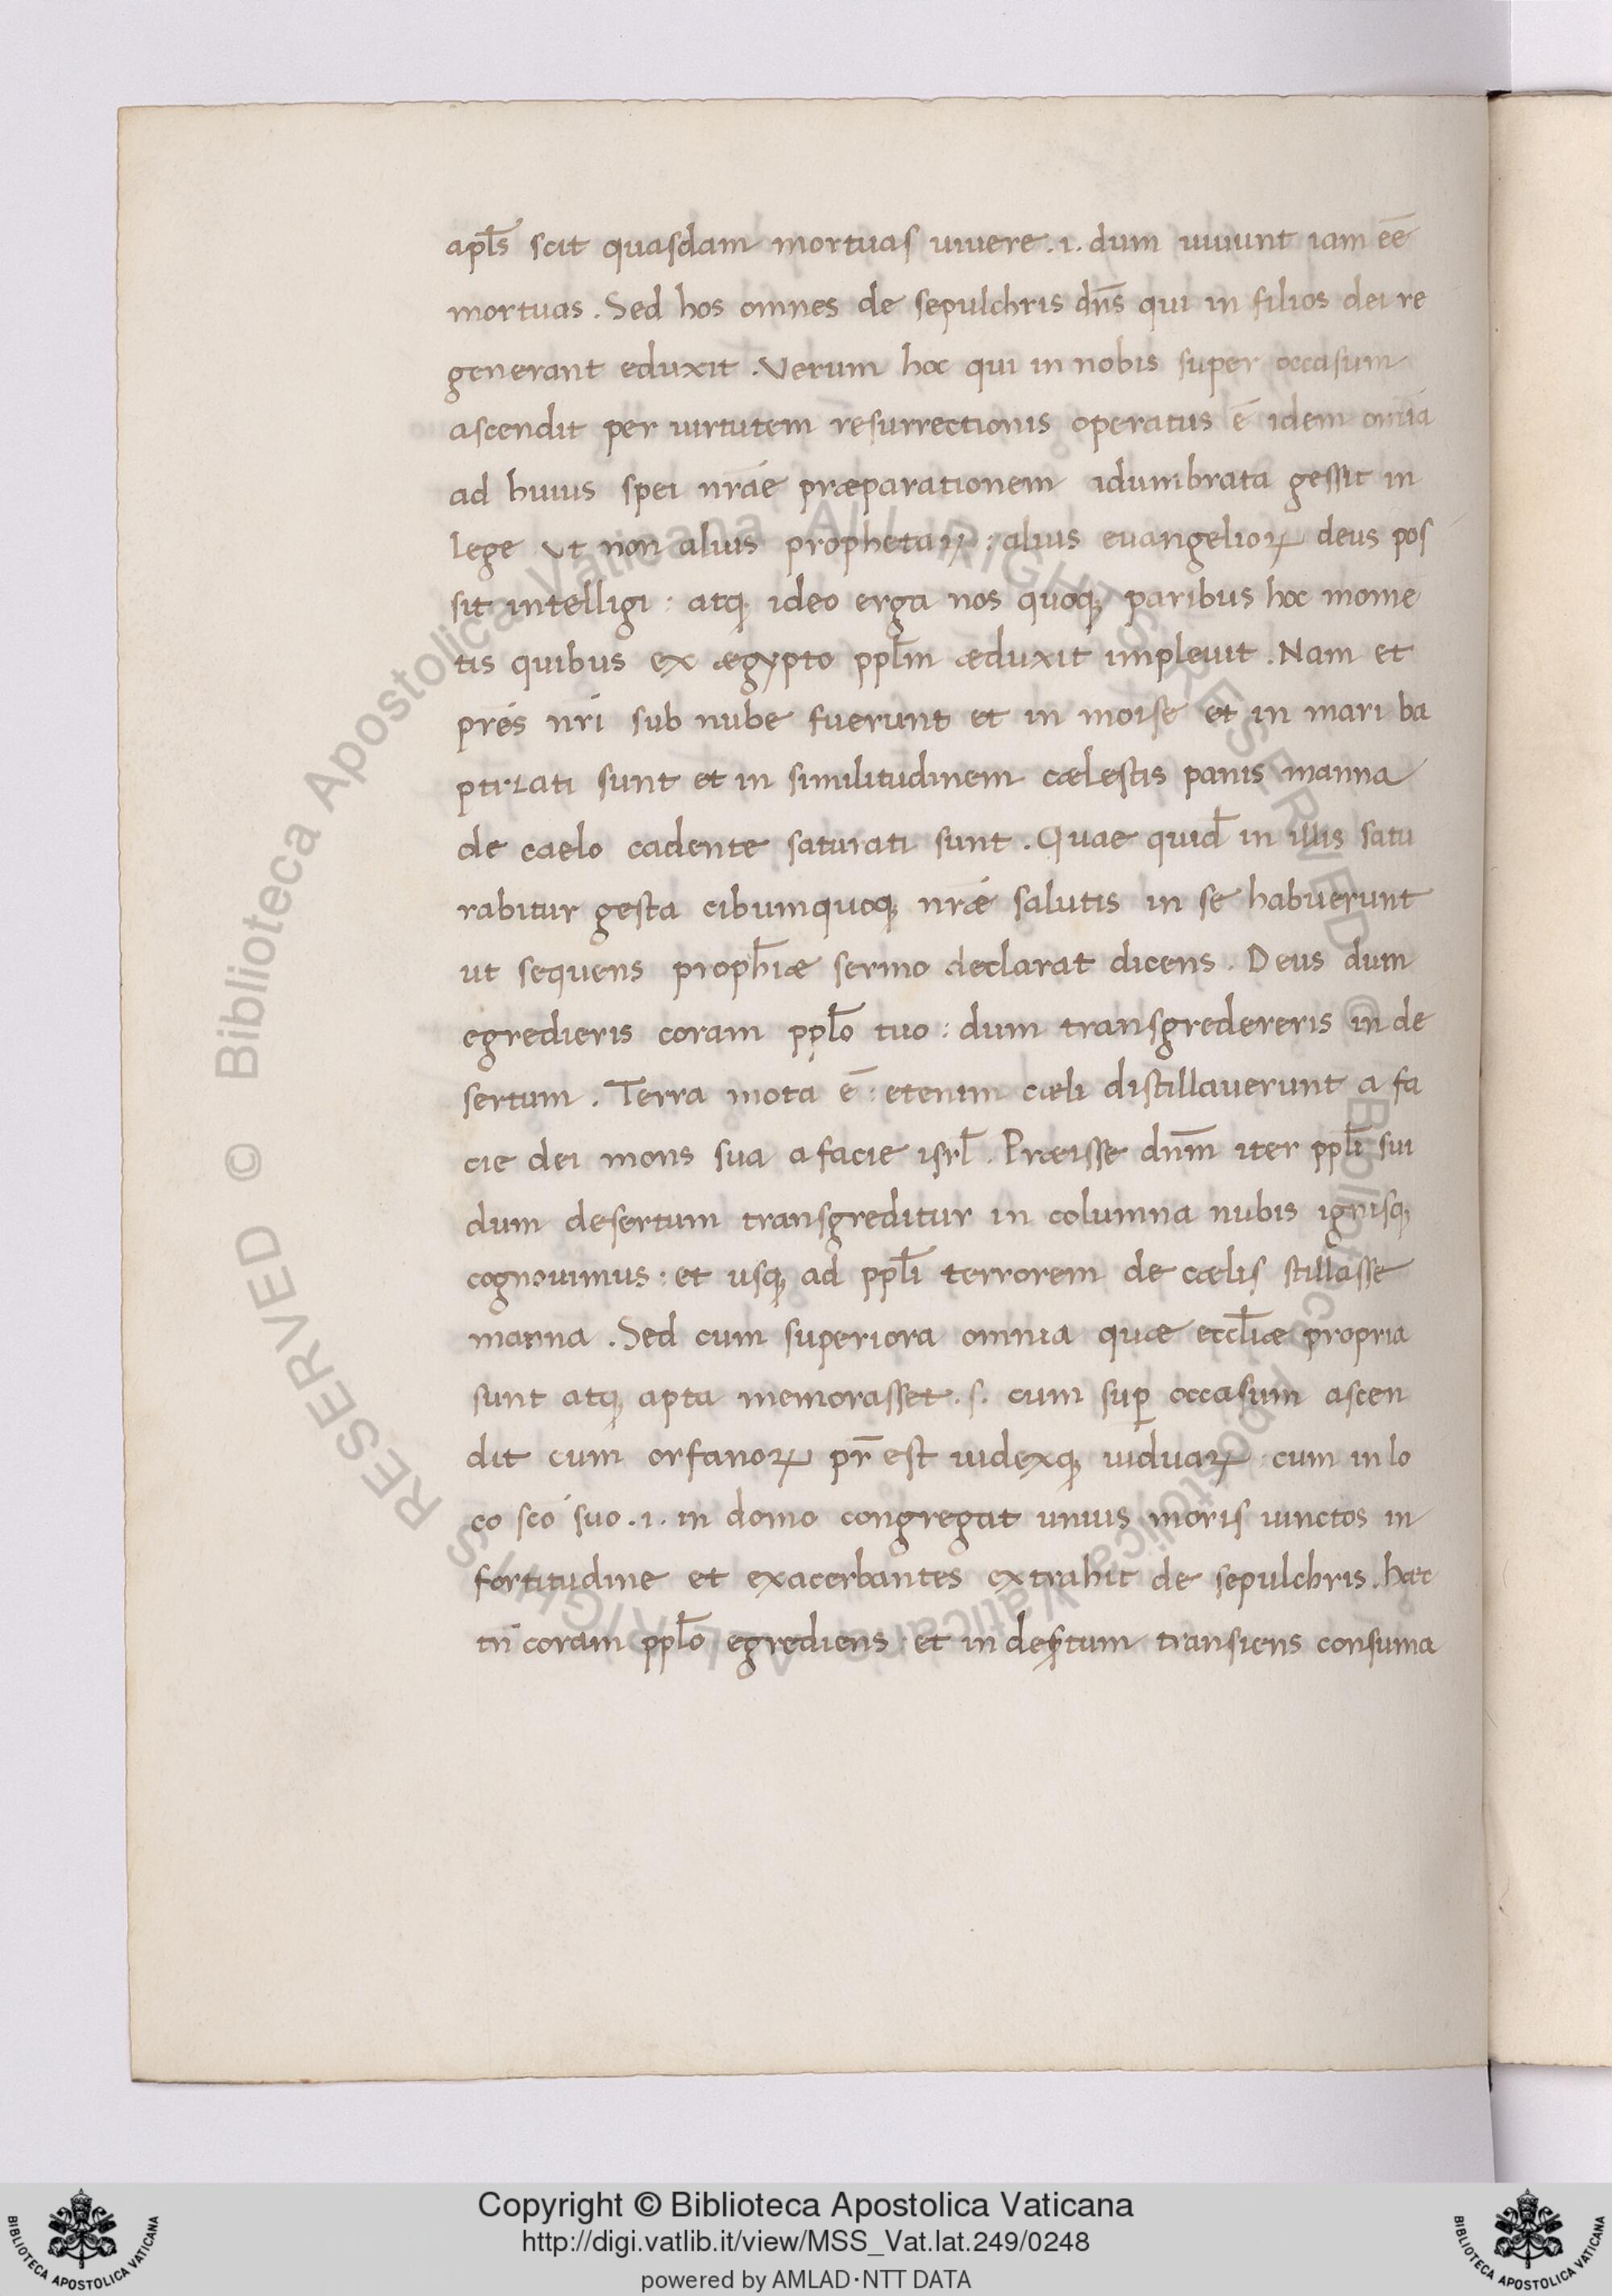 apl̅s scit quasdam mortuas uiuere .i. dum uiuunt iam ee̅
mortuas . Sed hos omnes de sepulchris dn̅s qui in filios dei re
generant eduxit . Verum hoc qui in nobis super occasum
ascendit per uirtutem resurrectionis operatus e̅ idem om̅ia
ad huius spei nr̅ae præparationem adumbrata gessit in
lege ut non alius prophetaꝝ : alius euangelioꝝ deus pos
sit intelligi : atq; ideo erga nos quoq; paribus hoc mome
tis quibus ex ægypto ppl̅m æduxit impleuit . Nam et
pr̅es nr̅i sub nube fuerunt et in moise et in mari ba
ptizati sunt et in similitudinem cælestis panis manna
de caelo cadente saturati sunt . Quae quid̅ in illis satu
rabitur gesta cibumquoq; nr̅æ salutis in se habuerunt
ut sequens proph̅iæ sermo declarat dicens . Deus dum
egredieris coram ppl̅o tuo : dum transgredereris in de
sertum . Terra mota e̅ : etenim cæli distillauerunt a fa
cie dei mons sua a facie isrl̅ . Præisse dn̅m iter ppl̅i sui
dum desertum transgreditur in columna nubis ignisq;
cognouimus : et usq; ad ppl̅i terrorem de cælis stillasse
manna . Sed cum superiora omnia quæ eccl̅iæ propria
sunt atq; apta memorasset .s. cum sup̲ occasum ascen
dit cum orfanoꝝ pr̅ est iudexq; uiduaꝝ : cum in lo
co sc̅o suo .i. in domo congregat unius moris uinctos in
fortitudine et exacerbantes extrahit de sepulchris . hæc
tn̅ coram ppl̅o egrediens : et in desertum transiens consuma
© Biblioteca Apostolica Vaticana ALL RIGHTS RESERVED © Biblioteca Apostolica Vaticana ALL RIGHTS RESERVED
Copyright © Biblioteca Apostolica Vaticana
http://digi.vatlib.it/view/MSS_Vat.lat.249/0248
powered by AMLAD·NTT DATA
BIBLIOTECA APOSTOLICA VATICANA
BIBLIOTECA APOSTOLICA VATICANA